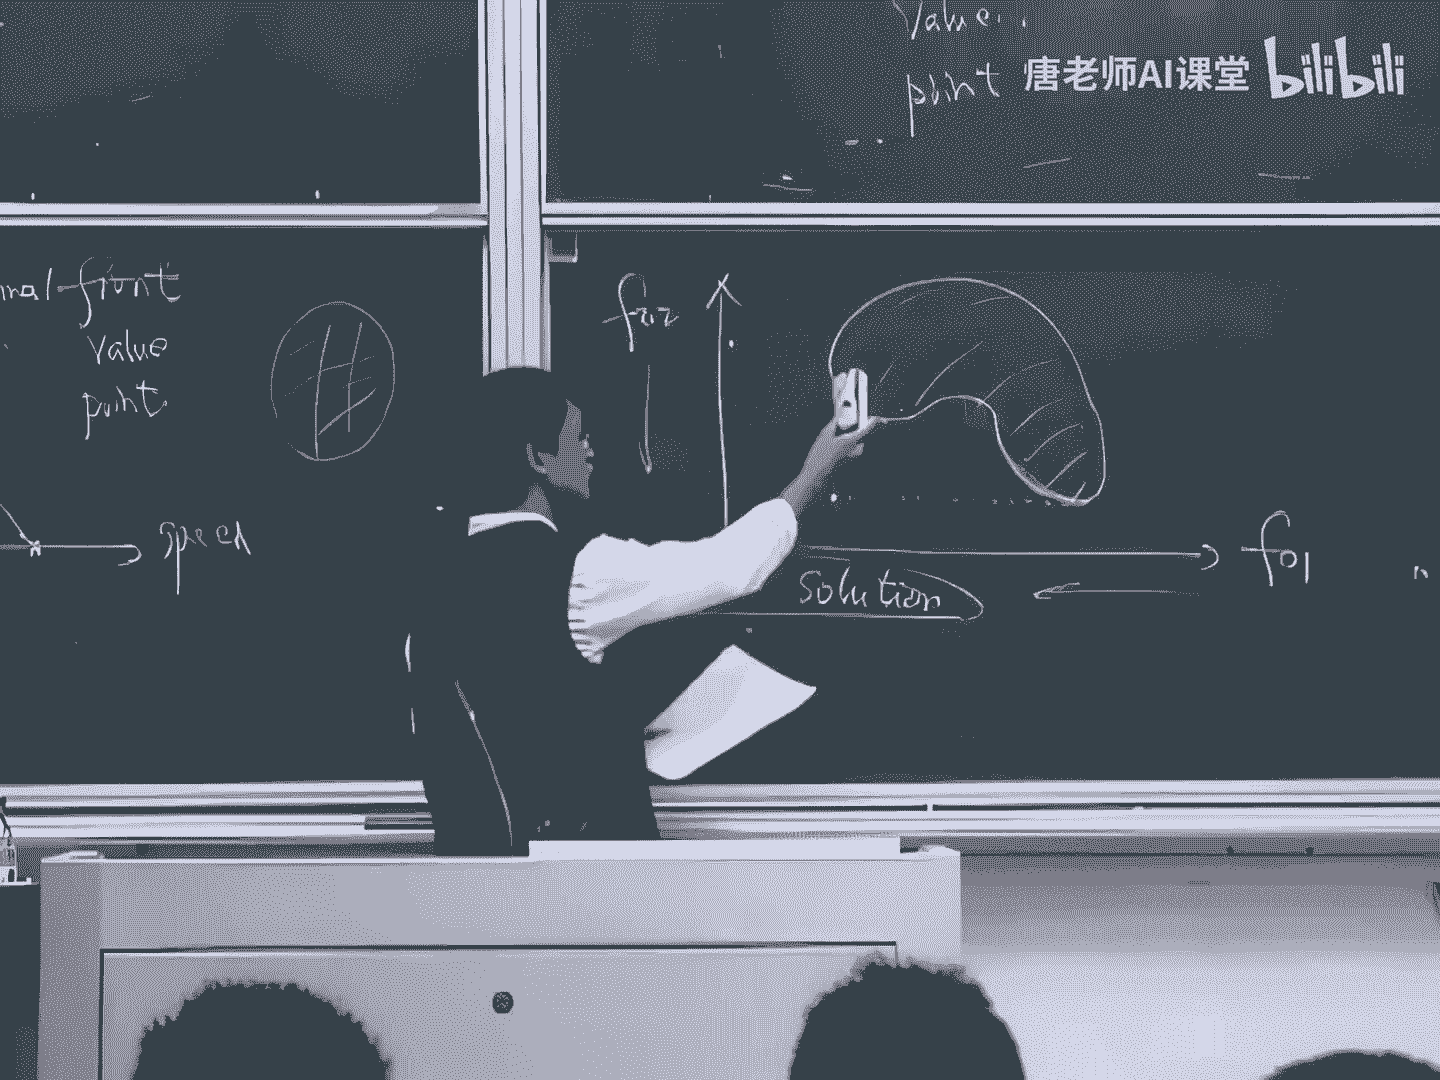 Value
point
唐老师AI课堂 bilibili
front
value
point
speed
solution